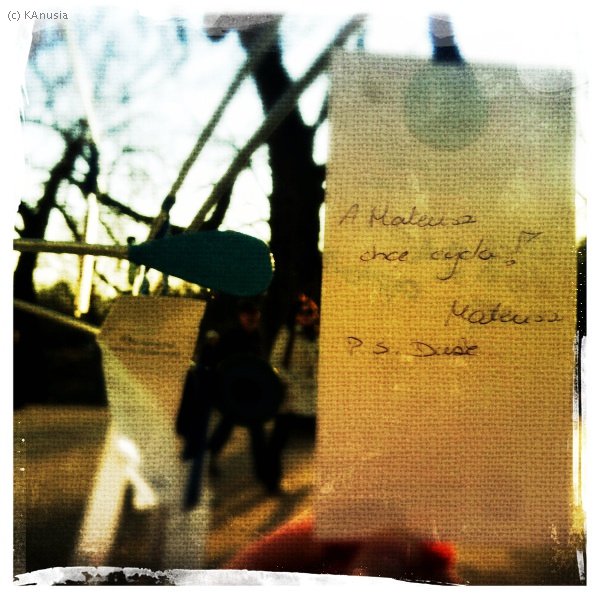 (c) KAnusia
A Mateusz
chce cycki!
Mateusz
P.S. Duże